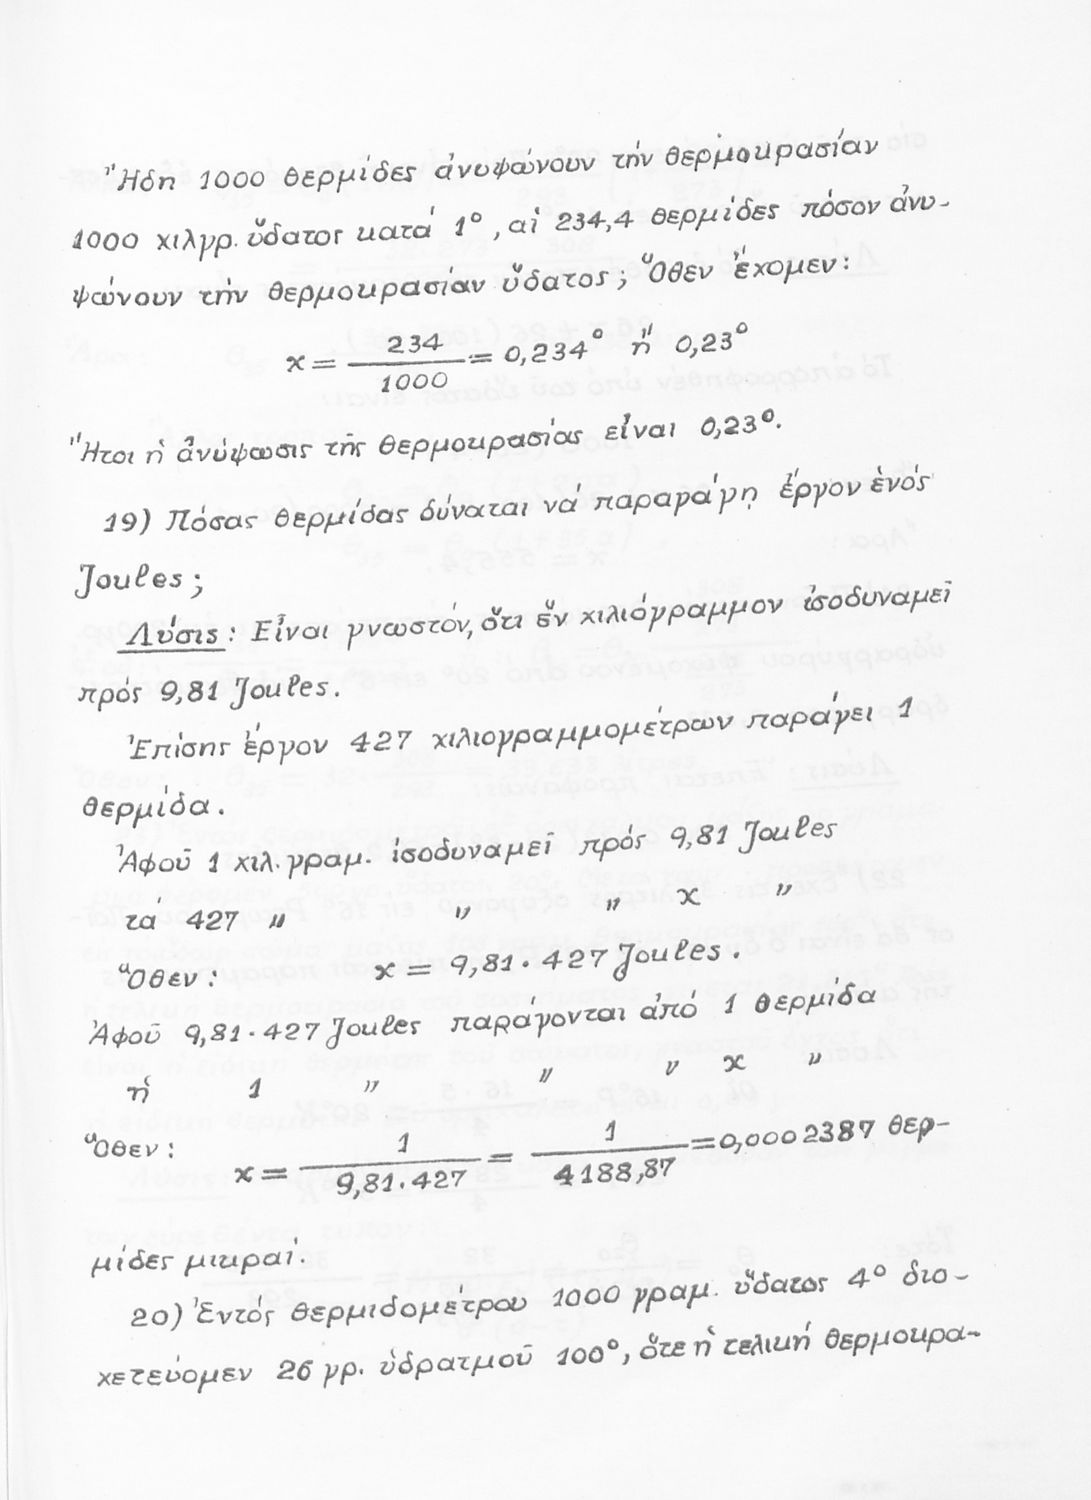 Ἤδη 1000 θερμίδες ἀνυψώνουν τήν θερμοκρασίαν
1000 χιλγρ. ὕδατος κατά 1°, αἱ 234,4 θερμίδες πόσον ἀνυ-
ψώνουν τήν θερμοκρασίαν ὕδατος; Ὅθεν ἔχομεν:
x = 234/1000 = 0,234° ἤ 0,23°
Ἤτοι ἡ ἀνύψωσις τῆς θερμοκρασίας εἶναι 0,23°.
19) Πόσας θερμίδας δύναται νά παραγάγῃ ἔργον ἑνός
Joules;
Λύσις: Εἶναι γνωστόν, ὅτι ἕν χιλιόγραμμον ἰσοδυναμεῖ
πρός 9,81 Joules.
Ἐπίσης ἔργον 427 χιλιογραμμομέτρων παράγει 1
θερμίδα.
Ἀφοῦ 1 χιλ. γραμ. ἰσοδυναμεῖ πρός 9,81 Joules
τά 427 " " " x "
Ὅθεν: x = 9,81 · 427 Joules.
Ἀφοῦ 9,81 · 427 Joules παράγονται ἀπό 1 θερμίδα
ἡ 1 " " " x "
Ὅθεν: x = 1/9,81.427 = 1/4188,87 = 0,0002387 θερ-
μίδες μικραί.
20) Ἐντός θερμιδομέτρου 1000 γραμ. ὕδατος 4° διο-
χετεύομεν 26 γρ. ὑδρατμοῦ 100°, ὅτε ἡ τελική θερμοκρα-